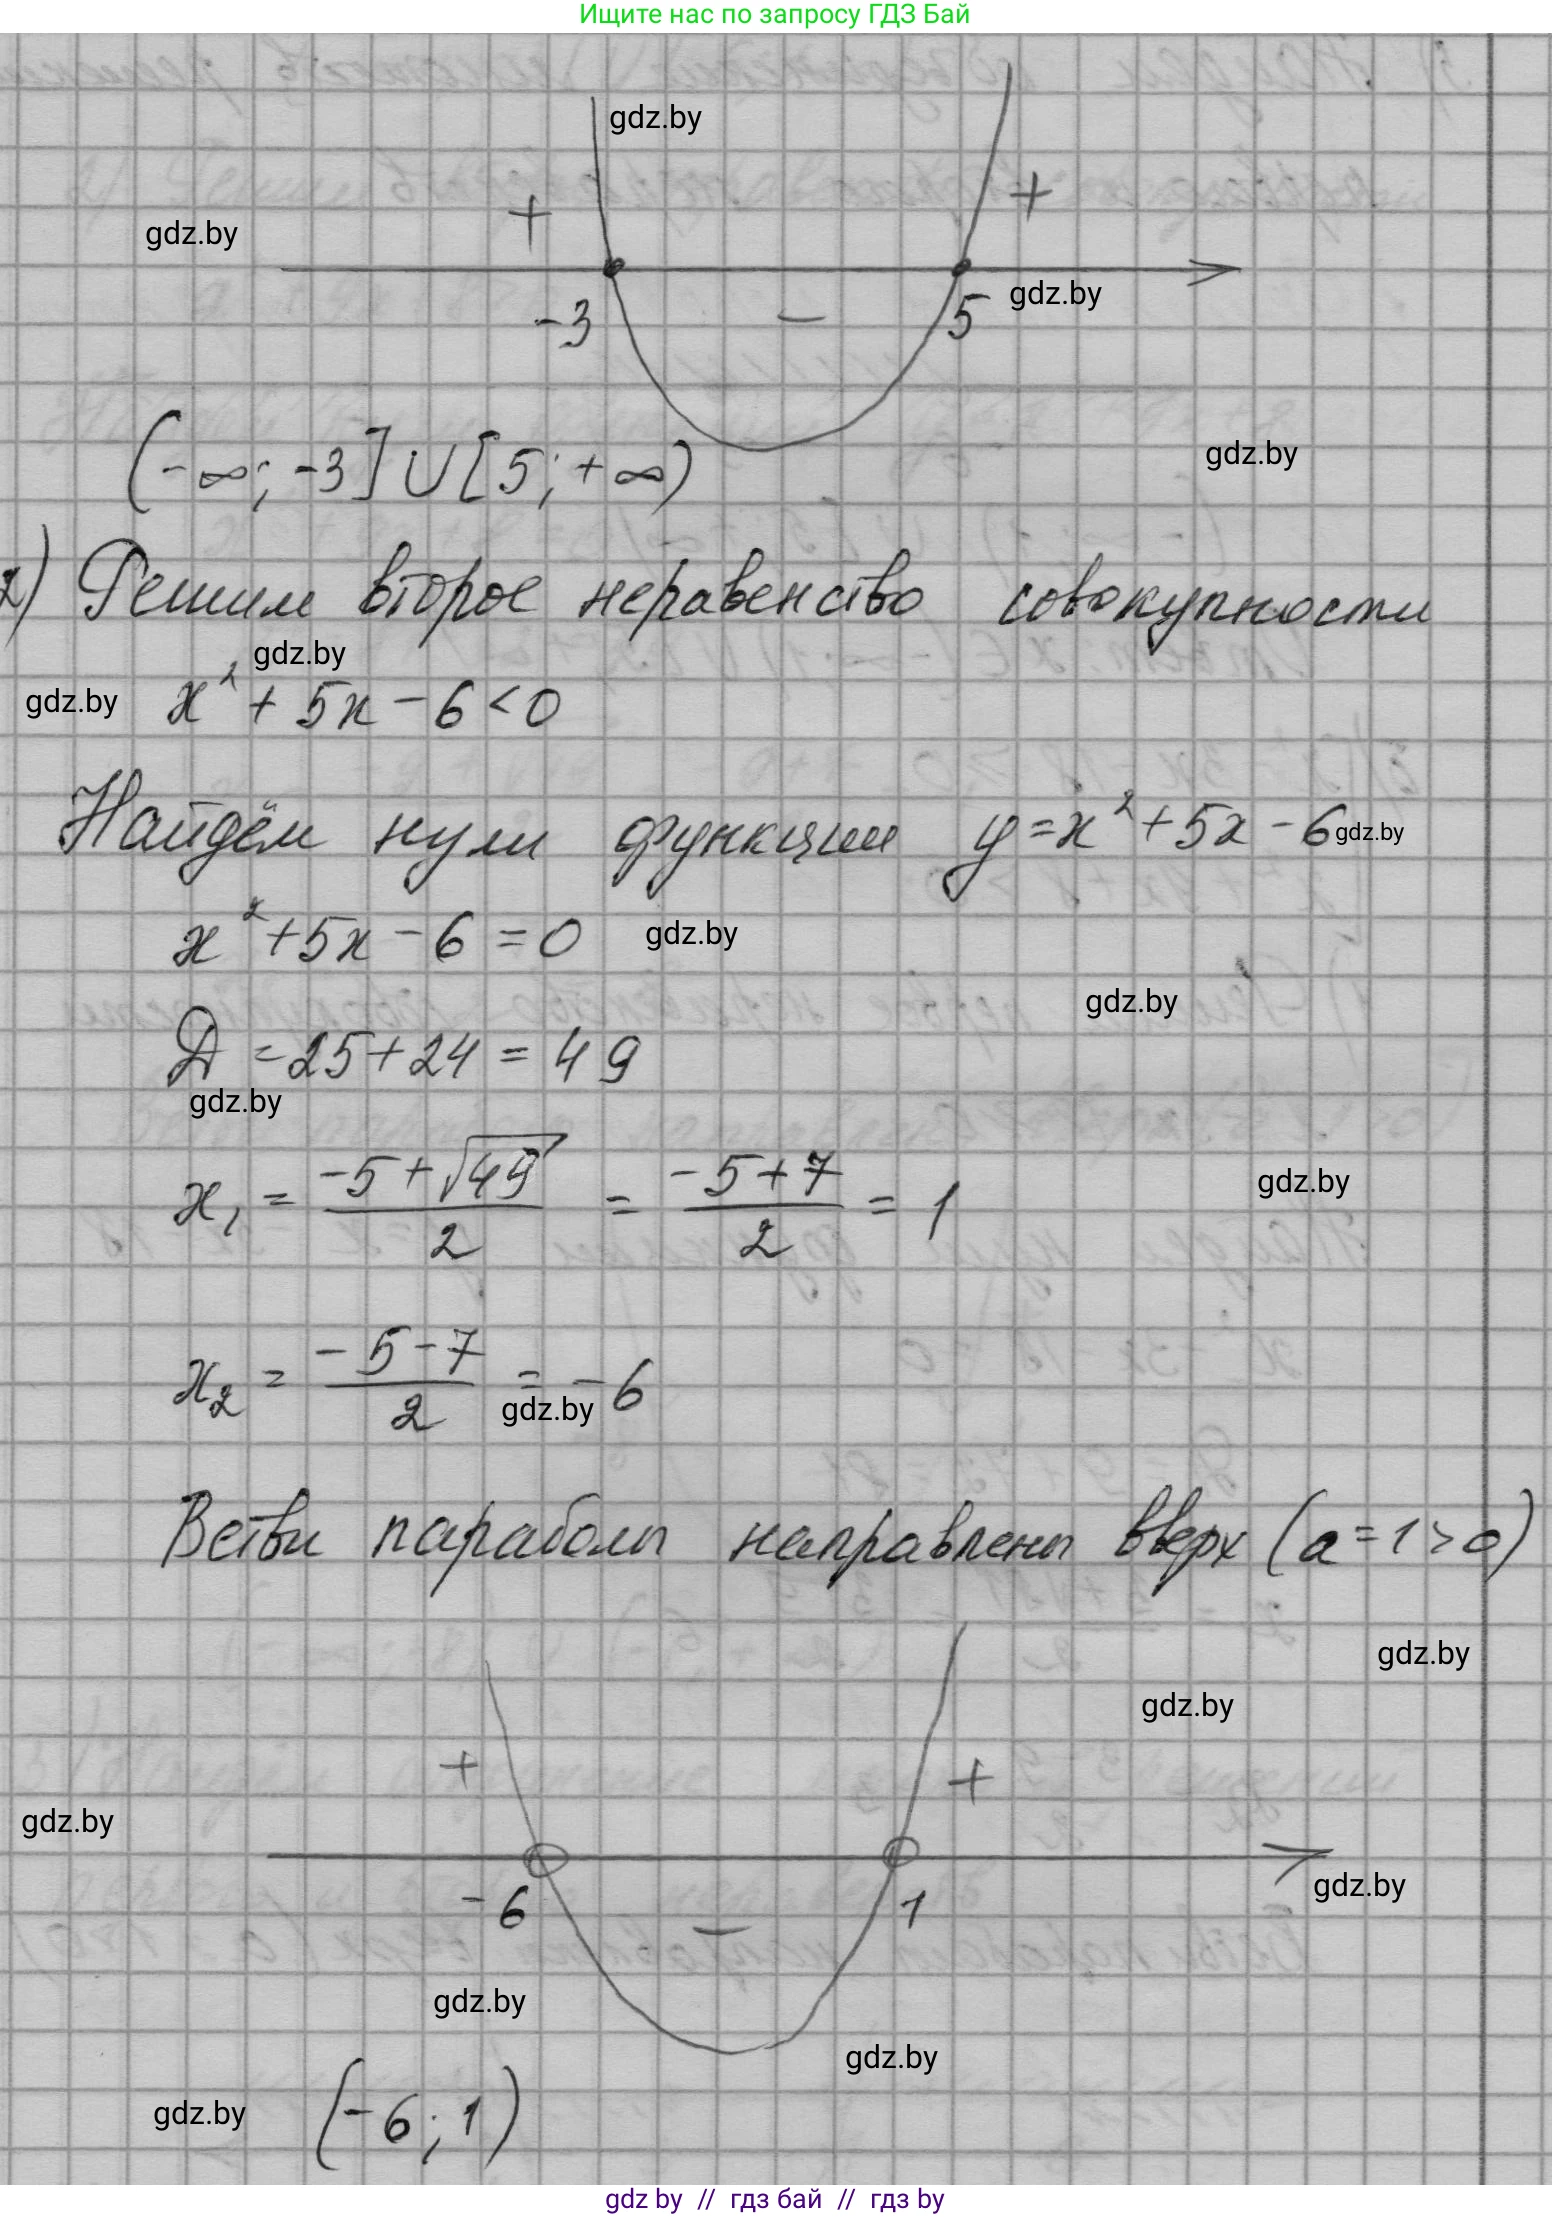 Ищите нас по запросу ГДЗ Бай
gdz.by
+ +
gdz.by
gdz.by
-3 - 5
gdz.by
(-∞; -3] ∪ [5; +∞)
2) Решим второе неравенство совокупности
gdz.by
gdz.by
x² + 5x - 6 < 0
Найдём нули функции y = x² + 5x - 6
gdz.by
x² + 5x - 6 = 0
gdz.by
gdz.by
Д = 25 + 24 = 49
gdz.by
gdz.by
x₁ = (-5 + √49)/2 = (-5 + 7)/2 = 1
x₂ = (-5 - 7)/2 = -6
gdz.by
Ветви параболы направлены вверх (a = 1 > 0)
gdz.by
gdz.by
+ +
gdz.by
gdz.by
-6 - 1
gdz.by
gdz.by
gdz.by
(-6; 1)
gdz by // гдз бай // гдз by